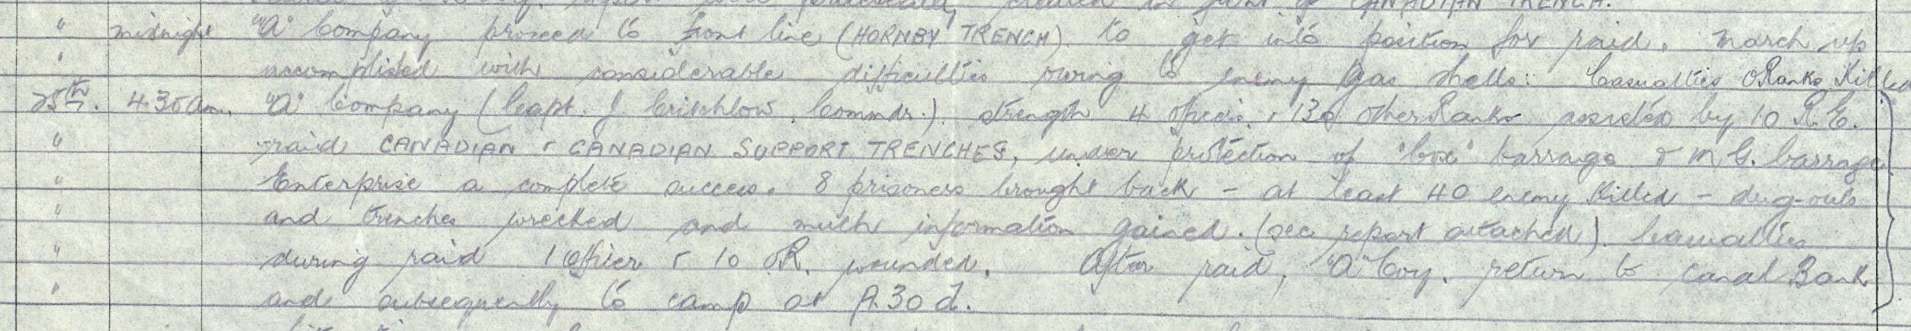 CANADIAN TRENCH.
" midnight "A" Company proceed to front line (HORNBY TRENCH) to get into position for raid. March up
" accomplished with considerable difficulties owing to enemy gas shells: Casualties Ranks Killed
25th. 4.30am. "A" Company (Capt. J Critchlow, Commdr.) strength 4 officers & 130 other Ranks assisted by 10 R.E.
" raid CANADIAN & CANADIAN SUPPORT TRENCHES, under protection of "box" barrage & M.G. barrage
" Enterprise a complete success. 8 prisoners brought back - at least 40 enemy killed - dug-outs
" and trenches wrecked and much information gained. (see report attached). Casualties
" during raid 1 Officer & 10 OR. wounded. After raid, "A" Coy. return to Canal Bank
" and subsequently to camp at A.30 d.